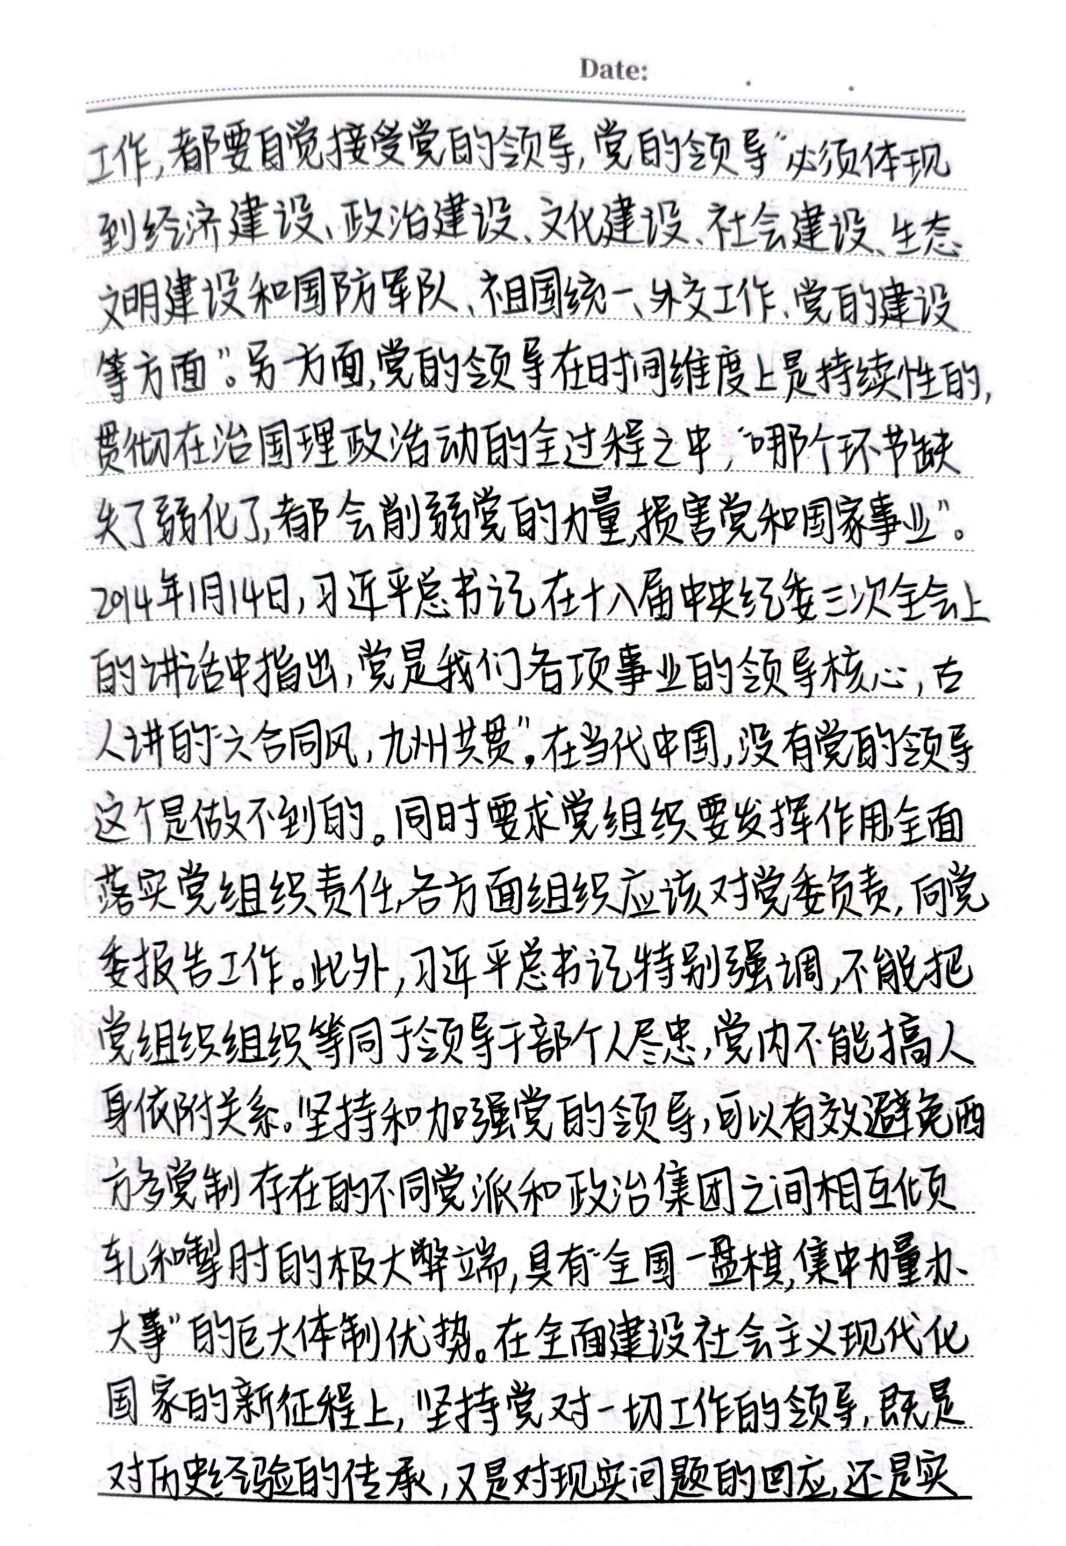 Date:
工作,都要自觉接受党的领导,党的领导“必须体现
到经济建设、政治建设、文化建设、社会建设、生态
文明建设和国防军队、祖国统一、外交工作、党的建设
等方面”。另一方面,党的领导在时间维度上是持续性的,
贯彻在治国理政活动的全过程之中,“哪个环节缺
失了弱化了,都会削弱党的力量,损害党和国家事业”。
2014年1月14日,习近平总书记在十八届中央纪委三次全会上
的讲话中指出,党是我们各项事业的领导核心,古
人讲的“六合同风,九州共贯”,在当代中国,没有党的领导
这个是做不到的。同时要求党组织要发挥作用全面
落实党组织责任,各方面组织应该对党委负责,向党
委报告工作。此外,习近平总书记特别强调,不能把
党组织组织等同于领导干部个人尽忠,党内不能搞人
身依附关系。坚持和加强党的领导,可以有效避免西
方多党制存在的不同党派和政治集团之间相互倾
轧和掣肘的极大弊端,具有“全国一盘棋,集中力量办
大事”的巨大体制优势。在全面建设社会主义现代化
国家的新征程上,“坚持党对一切工作的领导,既是
对历史经验的传承,又是对现实问题的回应,还是实